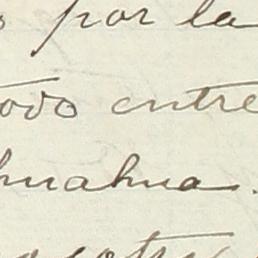 por la
todo entre
huahua.